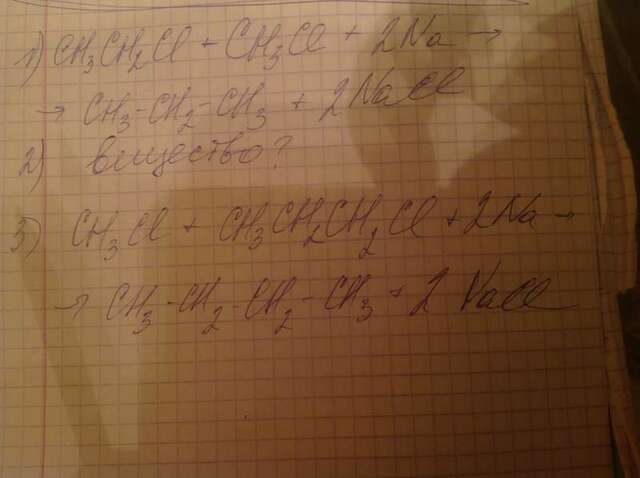 1) CH₃CH₂Cl + CH₃Cl + 2Na →
→ CH₃-CH₂-CH₃ + 2NaCl
2) вещество?
3) CH₃Cl + CH₃CH₂CH₂Cl + 2Na →
→ CH₃-CH₂-CH₂-CH₃ + 2NaCl